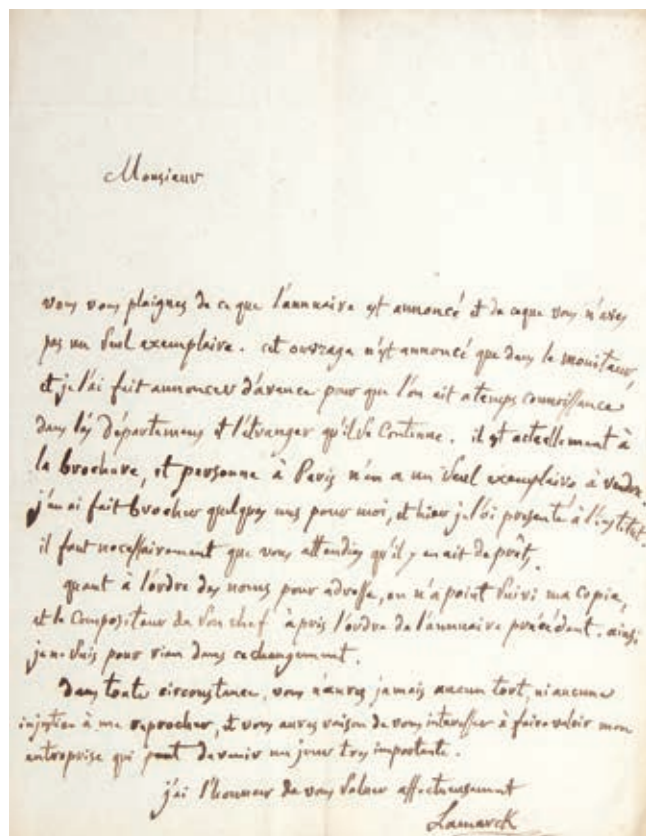 Monsieur
vous vous plaignes de ce que l'annuaire est annoncé et de ceque vous n'avez
pas un seul exemplaire. cet ouvrage n'est annoncé que dans le moniteur,
et je l'ai fait annoncer d'avance pour que l'on ait atemps connoissance
dans les départemens et l'étranger qu'il se continue. il est actuellement à
la brochure, et personne à Paris n'en a un seul exemplaire à vendre.
j'en ai fait brocher quelques uns pour moi, et hier je l'ai présenté à l'institut.
il faut nécessairement que vous attendiez qu'il y en ait de prêts.
quant à l'ordre des noms pour adresse, on n'a point suivi ma copie,
et le compositeur de son chef à pris l'ordre de l'annuaire précédent. ainsi
je ne suis pour rien dans cechangement.
dans toute circonstance, vous n'aures jamais aucun tort, ni aucune
injustice à me reprocher, et vous aures raison de vous interesser à faire valoir mon
entreprise qui peut devenir un jour tres importante.
j'ai l'honneur de vous saluer affectueusement
Lamarck